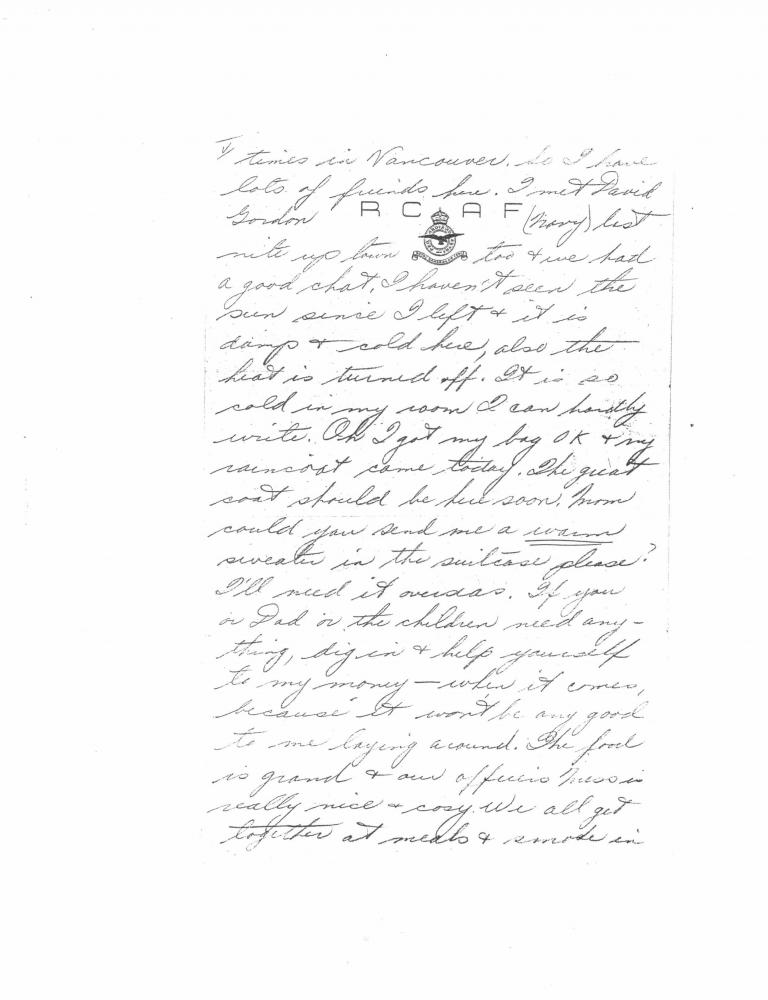 times in Vancouver. So I have
lots of friends here. I met David
Gordon R C A F (Navy) last
nite up town too & we had
a good chat. I haven't seen the
sun since I left & it is
damp & cold here, also the
heat is turned off. It is so
cold in my room I can hardly
write. Oh I got my bag OK & my
raincoat came today. The great
coat should be here soon. Mom
could you send me a warm
sweater in the suitcase please?
I'll need it overseas. If you
or Dad or the children need any-
thing, dig in & help yourself
to my money — when it comes,
because it won't be any good
to me laying around. The food
is grand & our officers Mess is
really nice & cosy. We all get
together at meals & smoke in